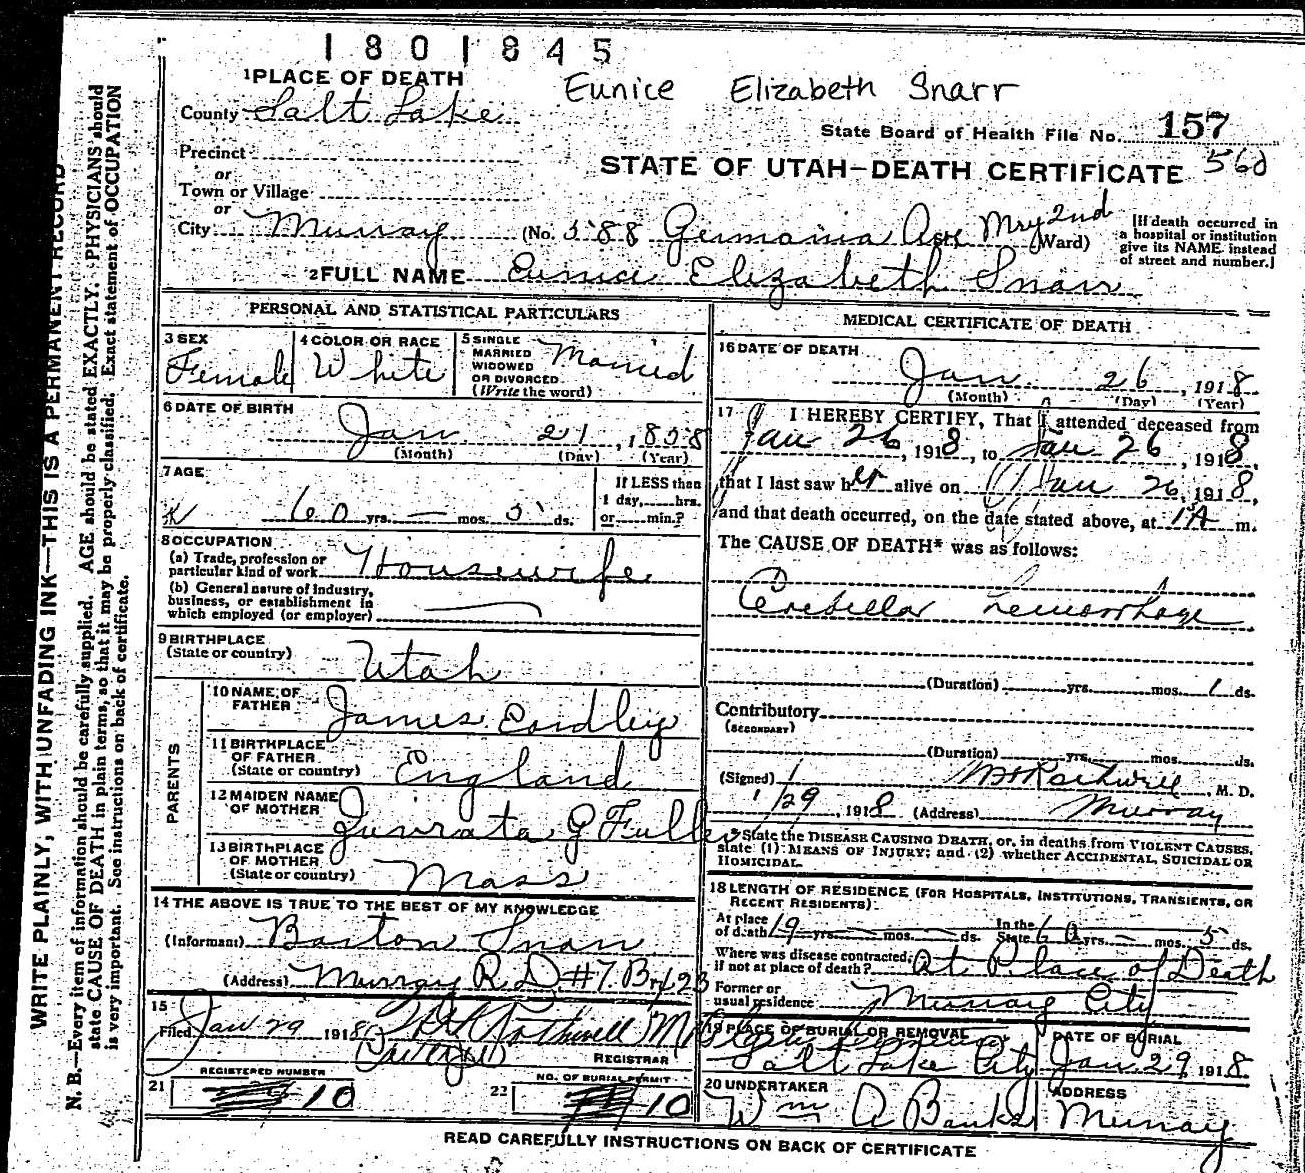 1801845
Eunice Elizabeth Snarr
1 PLACE OF DEATH
County Salt Lake
State Board of Health File No. 157
Precinct
or
Town or Village
or
STATE OF UTAH—DEATH CERTIFICATE 560
City Murray (No. 588 Germania Ave Mry 2nd (Ward)
[If death occurred in
a hospital or institution
give its NAME instead
of street and number.]
2 FULL NAME Eunice Elizabeth Snarr
PERSONAL AND STATISTICAL PARTICULARS
3 SEX Female
4 COLOR OR RACE White
5 SINGLE
MARRIED
WIDOWED
OR DIVORCED
(Write the word)
Married
6 DATE OF BIRTH
Jan 21, 1858
(Month) (Day) (Year)
7 AGE
60 yrs. — mos. 5 ds.
If LESS than
1 day, hrs.
or min.?
8 OCCUPATION
(a) Trade, profession or
particular kind of work Housewife
(b) General nature of industry,
business, or establishment in
which employed (or employer)
9 BIRTHPLACE
(State or country) Utah
PARENTS
10 NAME OF
FATHER James Eardley
11 BIRTHPLACE
OF FATHER
(State or country) England
12 MAIDEN NAME
OF MOTHER G Fuller
13 BIRTHPLACE
OF MOTHER
(State or country) Mass
14 THE ABOVE IS TRUE TO THE BEST OF MY KNOWLEDGE
(Informant) Barton Snarr
(Address) Murray R.D. #7. Bx 423
15
Filed Jan 29 1918 Rothwell
REGISTRAR
21 REGISTERED NUMBER
10
22 NO. OF BURIAL PERMIT
10
MEDICAL CERTIFICATE OF DEATH
16 DATE OF DEATH
Jan 26, 1918
(Month) (Day) (Year)
17 I HEREBY CERTIFY, That I attended deceased from
Jan 26, 1918, to Jan 26, 1918,
that I last saw her alive on Jan 26, 1918,
and that death occurred, on the date stated above, at 1 A m.
The CAUSE OF DEATH* was as follows:
Cerebellar Hemorrhage
(Duration) yrs. mos. 1 ds.
Contributory
(SECONDARY)
(Duration) yrs. mos. ds.
(Signed) Rothwell, M. D.
1/29, 1918 (Address) Murray
* State the DISEASE CAUSING DEATH, or, in deaths from VIOLENT CAUSES,
state (1) MEANS OF INJURY; and (2) whether ACCIDENTAL, SUICIDAL OR
HOMICIDAL.
18 LENGTH OF RESIDENCE (FOR HOSPITALS, INSTITUTIONS, TRANSIENTS, OR
RECENT RESIDENTS)
At place
of death 19 yrs. — mos. — ds.
In the
State 60 yrs. — mos. 5 ds.
Where was disease contracted,
if not at place of death? At Place of Death
Former or
usual residence Murray City
19 PLACE OF BURIAL OR REMOVAL
Salt Lake City
DATE OF BURIAL
Jan. 29, 1918.
20 UNDERTAKER
Wm A Banks
ADDRESS
Murray
READ CAREFULLY INSTRUCTIONS ON BACK OF CERTIFICATE
WRITE PLAINLY, WITH UNFADING INK—THIS IS A PERMANENT RECORD
N. B.—Every item of information should be carefully supplied. AGE should be stated EXACTLY. PHYSICIANS should
state CAUSE OF DEATH in plain terms, so that it may be properly classified. Exact statement of OCCUPATION
is very important. See instructions on back of certificate.